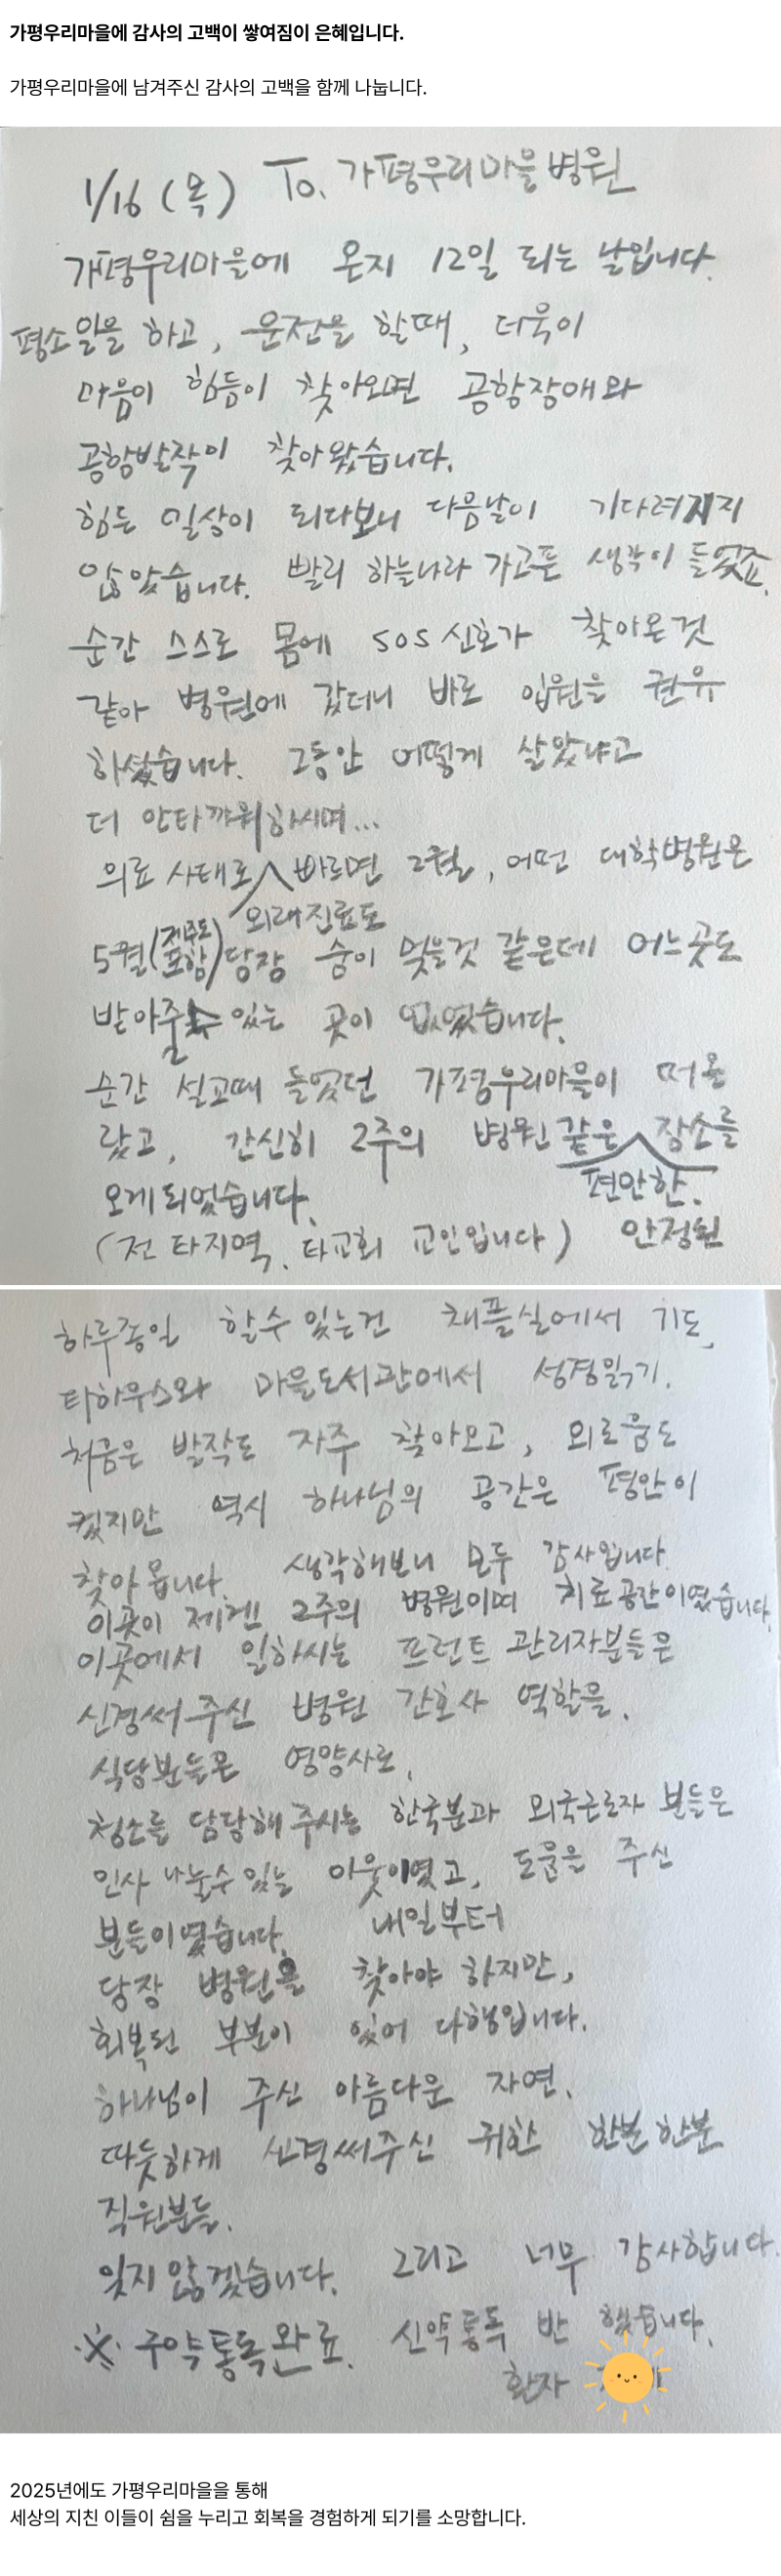 가평우리마을에 감사의 고백이 쌓여짐이 은혜입니다.
가평우리마을에 남겨주신 감사의 고백을 함께 나눕니다.
1/16 (목) To. 가평우리마을병원
가평우리마을에 온지 12일 되는 날입니다.
평소 일을 하고, 운전을 할때, 더욱이
마음이 힘듬이 찾아오면 공항장애와
공항발작이 찾아왔습니다.
힘든 일상이 되다보니 다음날이 기다려지지
않았습니다. 빨리 하늘나라 가고픈 생각이 들었죠.
순간 스스로 몸에 SOS 신호가 찾아온것
같아 병원에 갔더니 바로 입원을 권유
하셨습니다. 그동안 어떻게 살았냐고
더 안타까워하시며...
의료 사태로 빠르면 2월, 어떤 대학병원은
외래진료도
5월(제주도 포함) 당장 숨이 멎을것 같은데 어느곳도
받아줄수 있는 곳이 없었습니다.
순간 설교때 들었던 가평우리마을이 떠올
랐고, 간신히 2주의 병원같은 장소를
편안한.
오게되었습니다. 안정된
(전 타지역, 타교회 교인입니다)
하루종일 할수 있는건 채플실에서 기도,
티하우스와 마을도서관에서 성경읽기.
처음은 발작도 자주 찾아오고, 외로움도
컸지만 역시 하나님의 공간은 평안이
찾아 옵니다. 생각해보니 모두 감사입니다.
이곳이 제겐 2주의 병원이며 치료공간이였습니다.
이곳에서 일하시는 프런트 관리자분들은
신경써주신 병원 간호사 역할을,
식당분들은 영양사로,
청소를 담당해주시는 한국분과 외국근로자 분들은
인사 나눌수 있는 이웃이였고, 도움을 주신
분들이였습니다. 내일부터
당장 병원을 찾아야 하지만,
회복된 부분이 있어 다행입니다.
하나님이 주신 아름다운 자연,
따듯하게 신경써주신 귀한 한분한분
직원분들.
잊지 않겠습니다. 그리고 너무 감사합니다.
※ 구약통독완료. 신약통독 반 했습니다.
환자
2025년에도 가평우리마을을 통해
세상의 지친 이들이 쉼을 누리고 회복을 경험하게 되기를 소망합니다.